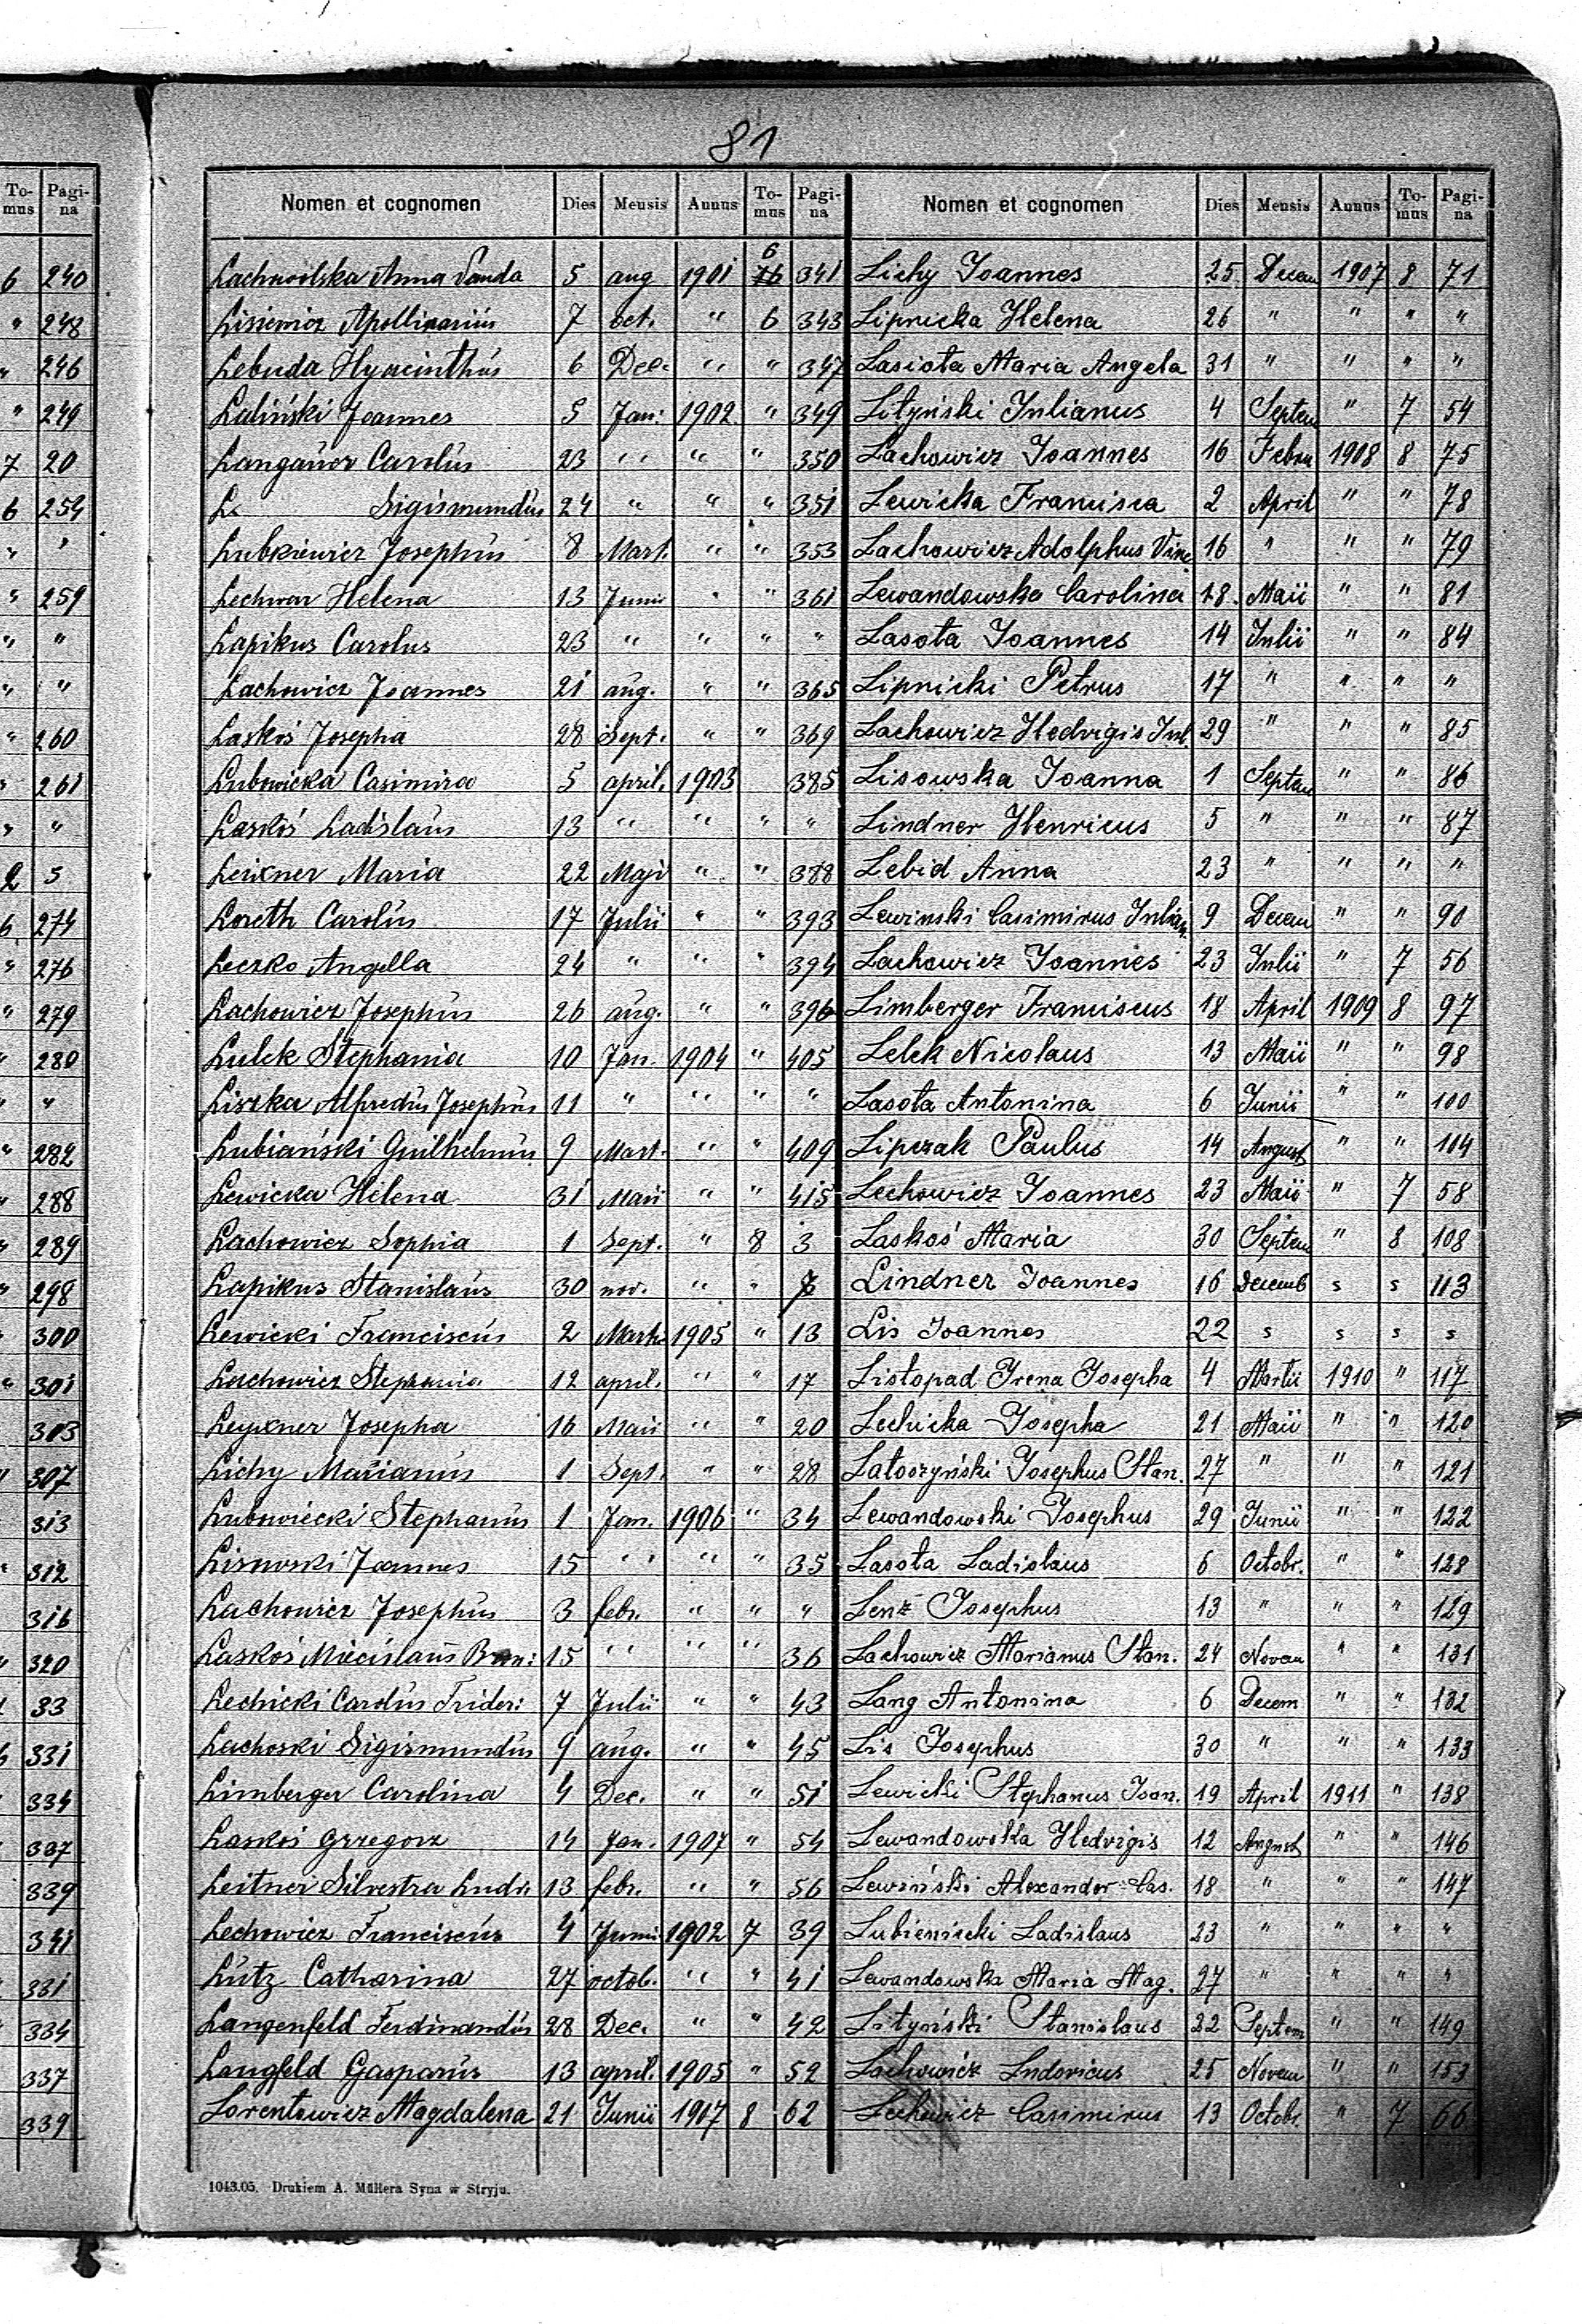 81
To- Pagi-
mus na
6 240
" 248
" 246
" 249
7 20
6 254
" "
" 259
" "
" "
" 260
" 261
" "
2 5
6 274
" 276
" 279
" 280
" "
" 282
" 288
" 289
" 298
" 300
" 301
303
" 307
313
" 312
316
" 320
33
331
" 334
" 337
339
341
" 331
" 334
337
339
Nomen et cognomen Dies Mensis Annus To-mus Pagi-na
Lachowolska Anna Vanda 5 aug 1901 6 341
Lisiewicz Apollinariús 7 oct. " 6 343
Lebuda Hyacinthús 6 Dec. " " 347
Laliński Joannes 5 Jan. 1902 " 349
Langaúer Carolús 23 " " " 350
L Sigismundús 24 " " " 351
Lubkiewicz Josephús 8 Mart. " " 353
Lechwar Helena 13 Junii " " 361
Lapikus Carolus 23 " " " "
Lachowicz Joannes 21 aúg. " " 365
Laskoś Josepha 28 Sept. " " 369
Lubowicka Casimira 5 april. 1903 385
Laskoś Ladislaús 13 " " " "
Leixner Maria 22 Maji " " 388
Loreth Carolús 17 Julii " " 393
Leczko Angella 24 " " " 394
Lachowicz Josephús 26 aúg. " " 396
Lulek Stephania 10 Jan. 1904 " 405
Liszka Alfredús Josephús 11 " " " "
Lubiański Guilhelmús 9 Mart. " " 409
Lewicka Helena 31 Maii " " 415
Lachowicz Sophia 1 Sept. " 8 3
Lapikus Stanislaús 30 nov. " " 7
Lewicki Franciscús 2 Mart. 1905 " 13
Lachowicz Stephania 12 april. " " 17
Leyxner Josepha 16 Maii " " 20
Lichy Marianús 1 Sept. " " 28
Lubowiecki Stephanús 1 Jan. 1906 " 34
Lisowski Joannes 15 " " " 35
Lachowicz Josephús 3 febr. " " "
Laskoś Miecislaús Bron: 15 " " " 36
Lechicki Carolús Frideri: 7 Julii " " 43
Lachoski Sigismundús 9 aúg. " " 45
Limberger Carolina 4 Dec. " " 51
Laskoś Grzegorz 14 Jan. 1907 " 54
Leitner Silvestra Ludv. 13 febr. " " 56
Lechowicz Franciscús 4 Junii 1902 7 39
Lútz Catharina 27 octob. " " 41
Langenfeld Ferdinandús 28 Dec. " " 42
Langfeld Gasparús 13 april. 1905 " 52
Lorentowicz Magdalena 21 Junii 1917 8 62
1043.05. Drukiem A. Müllera Syna w Stryju.
Nomen et cognomen Dies Mensis Annus To-mus Pagi-na
Lichy Joannes 25. Decem 1907 8 71
Lipnicka Helena 26 " " " "
Lasiota Maria Angela 31 " " " "
Lityński Julianus 4 Septem " 7 54
Lachowicz Joannes 16 Febru 1908 8 75
Lewicka Francisca 2 April " " 78
Lachowicz Adolphus Vinc 16 " " " 79
Lewandowska Carolina 18. Maii " " 81
Lasota Joannes 14 Julii " " 84
Lipnicki Petrus 17 " " " "
Lachowicz Hedvigis Jul. 29 " " " 85
Lisowska Joanna 1 Septem " " 86
Lindner Henricus 5 " " " 87
Lebid Anna 23 " " " "
Lewinski Casimirus Julian. 9 Decem " " 90
Lachowicz Joannes 23 Julii " 7 56
Limberger Franciscus 18 April 1909 8 97
Lelek Nicolaus 13 Maii " " 98
Lasota Antonina 6 Junii " " 100
Lipczak Paulus 14 August " " 104
Lechowicz Joannes 23 Maii " 7 58
Laskoś Maria 30 Septem " 8 108
Lindner Joannes 16 Decemb s s 113
Lis Joannes 22 s s s s
Listopad Irena Josepha 4 Martii 1910 " 117
Lechicka Josepha 21 Maii " " 120
Latoszyński Josephus Stan. 27 " " " 121
Lewandowski Josephus 29 Junii " " 122
Lasota Ladislaus 6 Octobr. " " 128
Lenz Josephus 13 " " " 129
Lachowicz Marianus Stan. 24 Novem " " 131
Lang Antonina 6 Decem " " 132
Lis Josephus 30 " " " 133
Lewicki Stephanus Joan. 19 April 1911 " 138
Lewandowska Hedvigis 12 August " " 146
Lewiński Alexander Cas. 18 " " " 147
Lubieniecki Ladislaus 23 " " " "
Lewandowska Maria Mag. 27 " " " "
Lityński Stanislaus 22 Septem " " 149
Lachowicz Ludovicus 25 Novem " " 153
Lechowicz Casimirus 13 Octobr. " 7 66